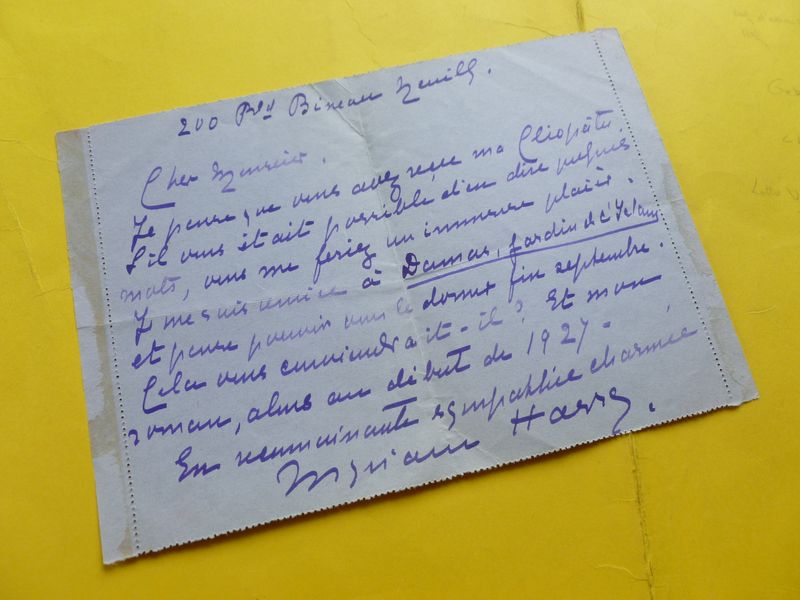 200 Bld Bineau Neuilly.
Cher Monsieur.
Je pense que vous avez reçu ma Cléopâtre
S'il vous était possible d'en dire quelques
mots, vous me feriez un immense plaisir.
Je me suis remise à Damas, Jardin de l'Islam
et pense pouvoir vous le donner fin septembre.
Cela vous conviendrait-il? Et mon
roman, alors au début de 1927-
En reconnaissante sympathie charmée
Myriam Harry.